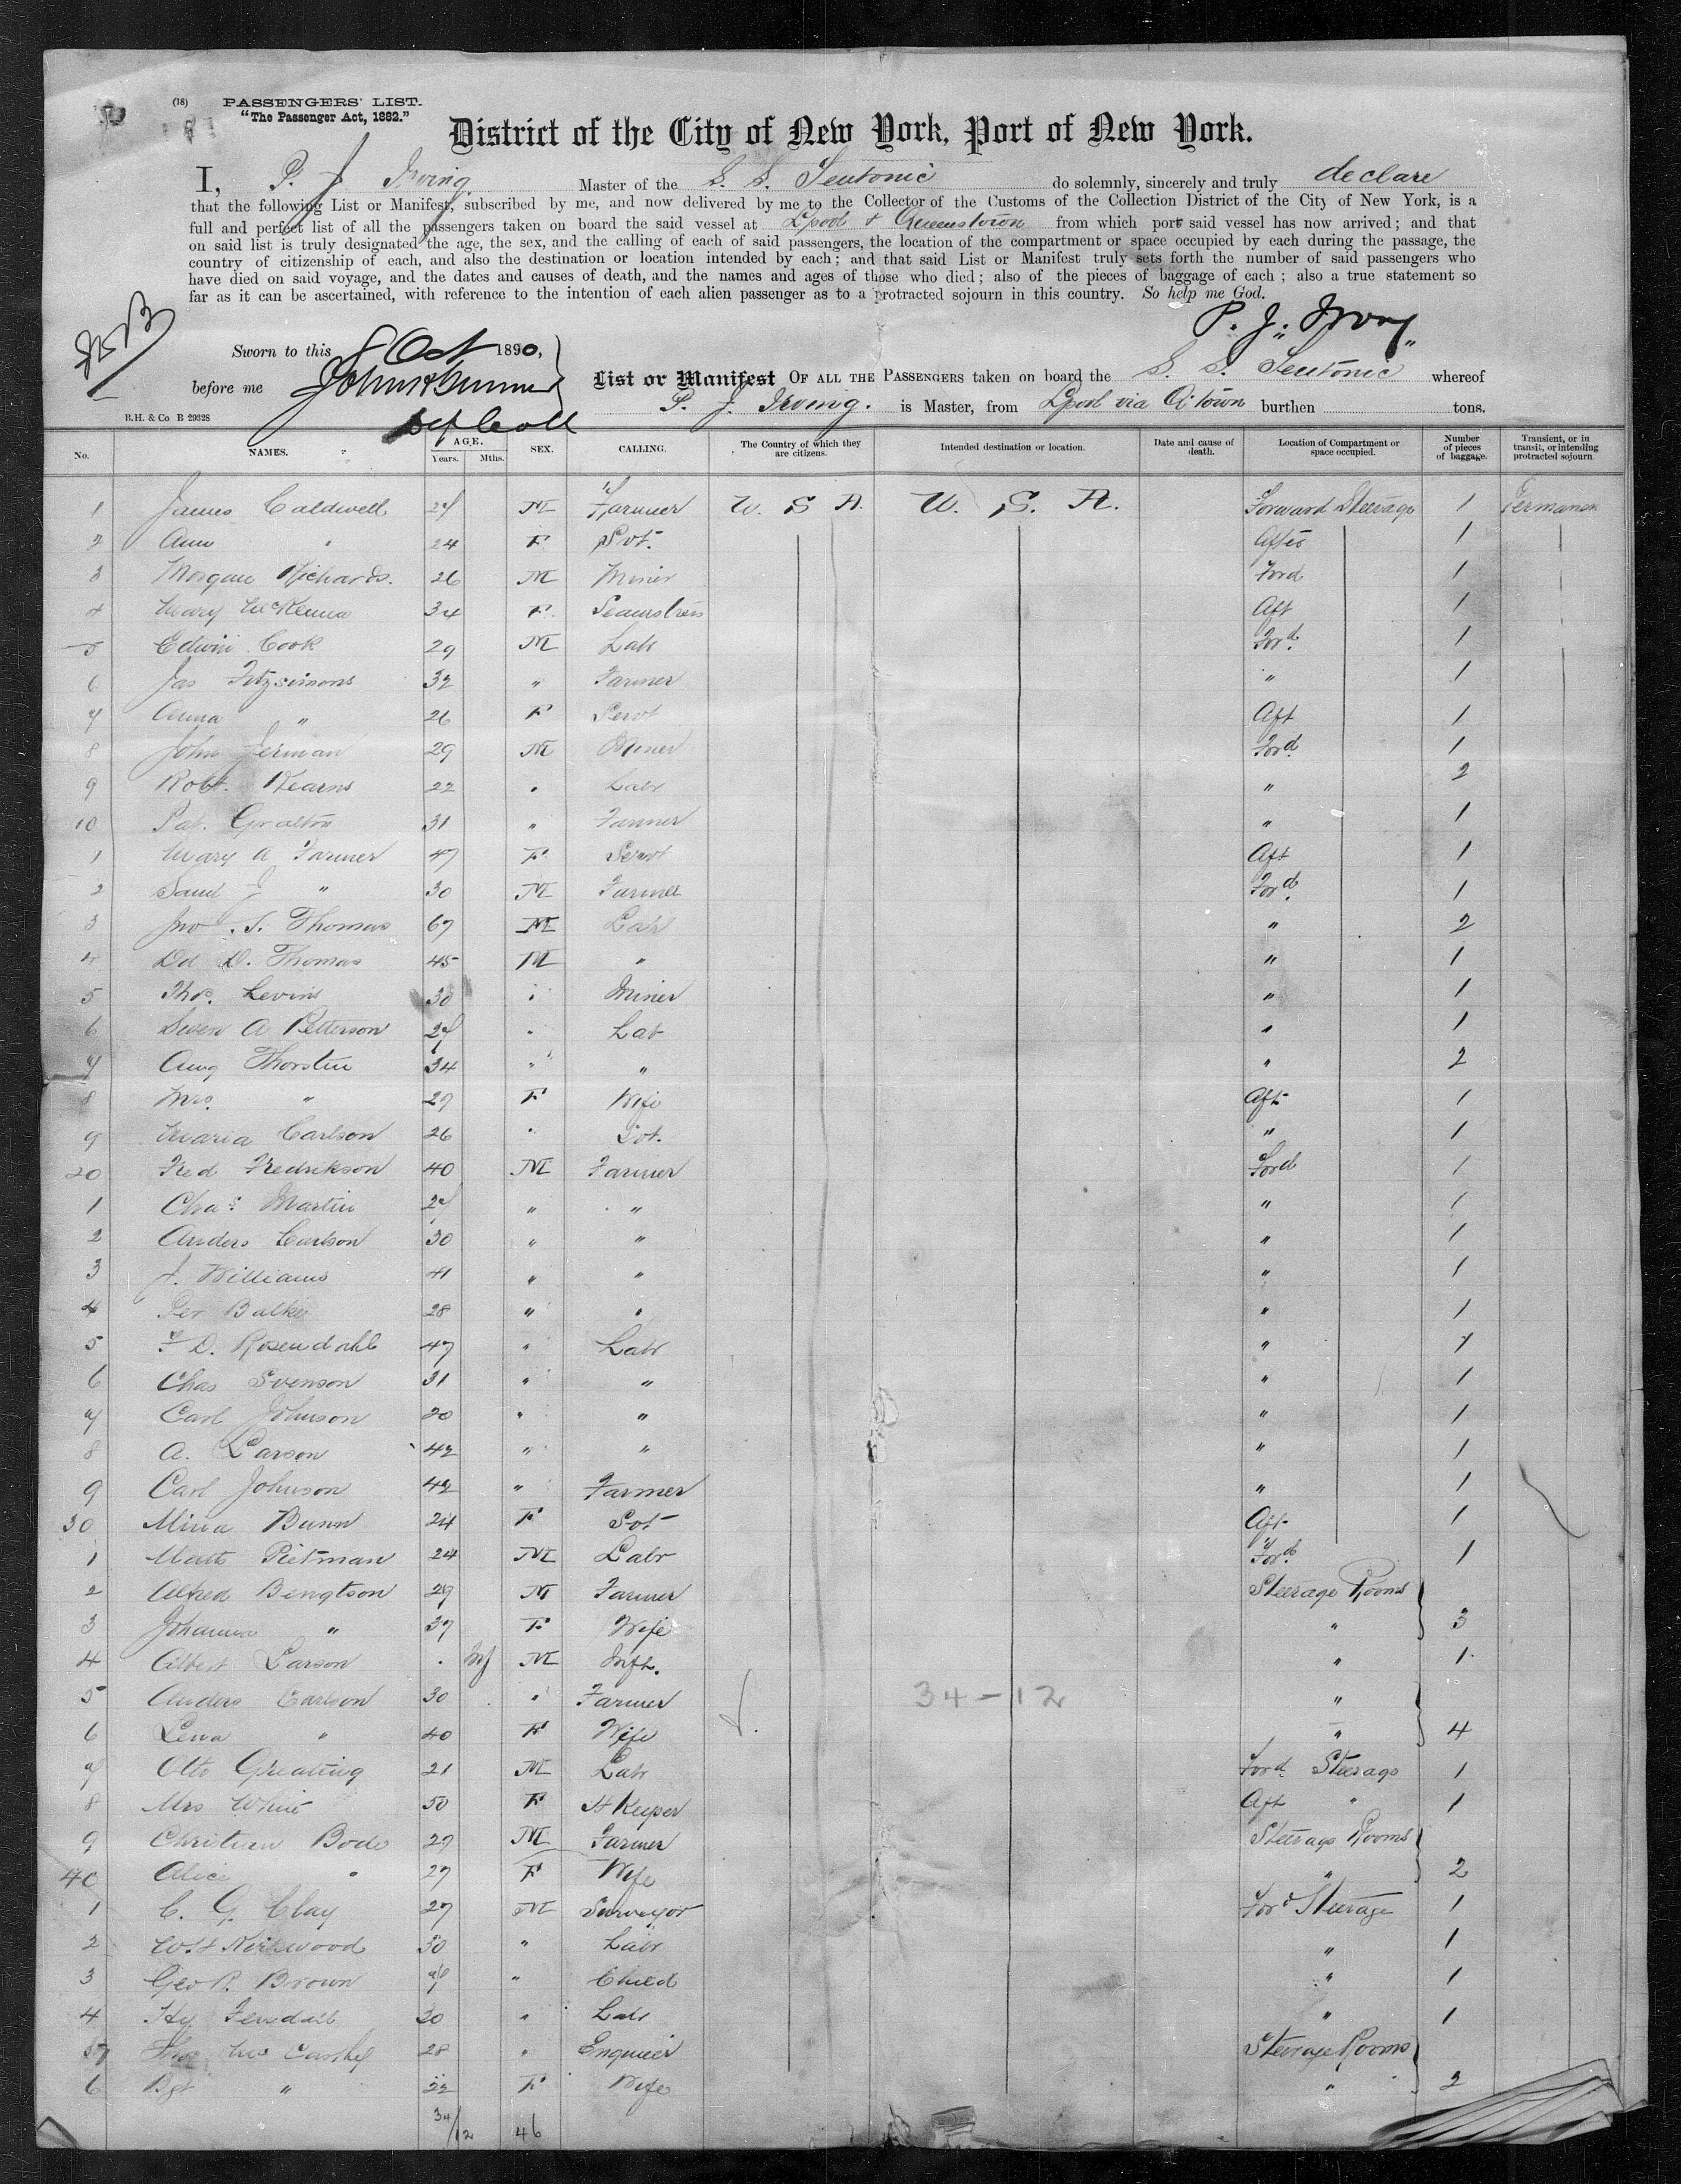 (18) PASSENGERS' LIST.
"The Passenger Act, 1882."
District of the City of New York, Port of New York.
I, P. J. Irving Master of the S. S. Teutonic do solemnly, sincerely and truly declare
that the following List or Manifest, subscribed by me, and now delivered by me to the Collector of the Customs of the Collection District of the City of New York, is a
full and perfect list of all the passengers taken on board the said vessel at Lpool & Queenstown from which port said vessel has now arrived; and that
on said list is truly designated the age, the sex, and the calling of each of said passengers, the location of the compartment or space occupied by each during the passage, the
country of citizenship of each, and also the destination or location intended by each; and that said List or Manifest truly sets forth the number of said passengers who
have died on said voyage, and the dates and causes of death, and the names and ages of those who died; also of the pieces of baggage of each; also a true statement so
far as it can be ascertained, with reference to the intention of each alien passenger as to a protracted sojourn in this country. So help me God.
P. J. Irving
Sworn to this 8 Oct 1890,
before me
List or Manifest OF ALL THE PASSENGERS taken on board the S. S. Teutonic whereof
P. J. Irving. is Master, from Lpool via Q'town burthen tons.
B.H. & Co B 29328
No. NAMES. AGE. Years. Mths. SEX. CALLING. The Country of which they are citizens. Intended destination or location. Date and cause of death. Location of Compartment or space occupied. Number of pieces of baggage. Transient, or in transit, or intending protracted sojourn.
1 James Caldwell 27 M Farmer U. S A. U. S. A. Forward Steerage 1 Permanen
2 Ann " 24 F Svt. After 1
3 Morgan Richards. 26 M Miner Ford 1
4 Mary McKenna 34 F. Seamstress Aft 1
5 Edwin Cook 29 M Labr Ford. 1
6 Jas Fitzsimons 32 " Farmer " 1
7 Anna " 26 F Servt Aft 1
8 John Jerman 29 M Miner Ford. 1
9 Robt. Kearns 22 " Labr " 2
10 Pat. Gralton 31 " Farmer " 1
1 Mary A Farmer 47 F Servt Aft 1
2 Saml J " 30 M Farmer Ford. 1
3 Jno. S. Thomas 67 M Labr " 2
4 Dd D. Thomas 45 M " " 1
5 Thos. Levins 30 " Miner " 1
6 Swen A Petterson 27 " Lab " 1
7 Aug Thorstin 34 " " " 2
8 Mrs. " 29 F Wife Aft 1
9 Maria Carlson 26 " Svt. " 1
20 Fred Fredrikson 40 M Farmer Ford 1
1 Chas. Martin 27 " " " 1
2 Anders Carlson 30 " " " 1
3 J. Williams 41 " " " 1
4 Per Balke 28 " " " 1
5 F D. Rosendahl 47 " Labr " 1
6 Chas Svenson 31 " " " 1
7 Carl Johnson 20 " " " 1
8 A. Larson 42 " " " 1
9 Carl Johnson 42 " Farmer " 1
30 Mina Bunn 24 F Svt Aft 1
1 Matts Pietman 24 M Labr Ford. 1
2 Alfred Bengtson 29 M Farmer Steerage Rooms
3 Johanna " 37 F Wife " 3
4 Albert Larson Inf M Inft. " 1
5 Anders Carlson 30 " Farmer 34-12 "
6 Lena " 40 F Wife " 4
7 Otto Greating 21 M Labr Ford. Steerage 1
8 Mrs White 50 F H Keeper Aft " 1
9 Christian Bode 29 M Farmer Steerage Rooms
40 Alice " 27 F Wife " 2
1 C. G. Clay 27 M Surveyor Ford Steerage 1
2 Kirkwood 30 " Labr " 1
3 Geo R. Brown 9 " Child " 1
4 Hy Tendall 30 " Labr " 1
5 Thos McCarthy 28 " Enginier Steerage Rooms
6 Bgt " 22 F Wife " 2
34/12 46